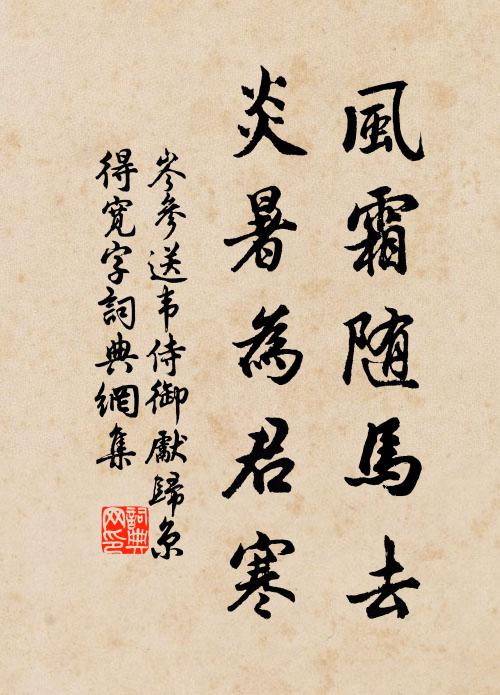 風霜随馬去
炎暑為君寒
岑參送韦侍御獻歸京
得寬字詞典網集
詞典
网印